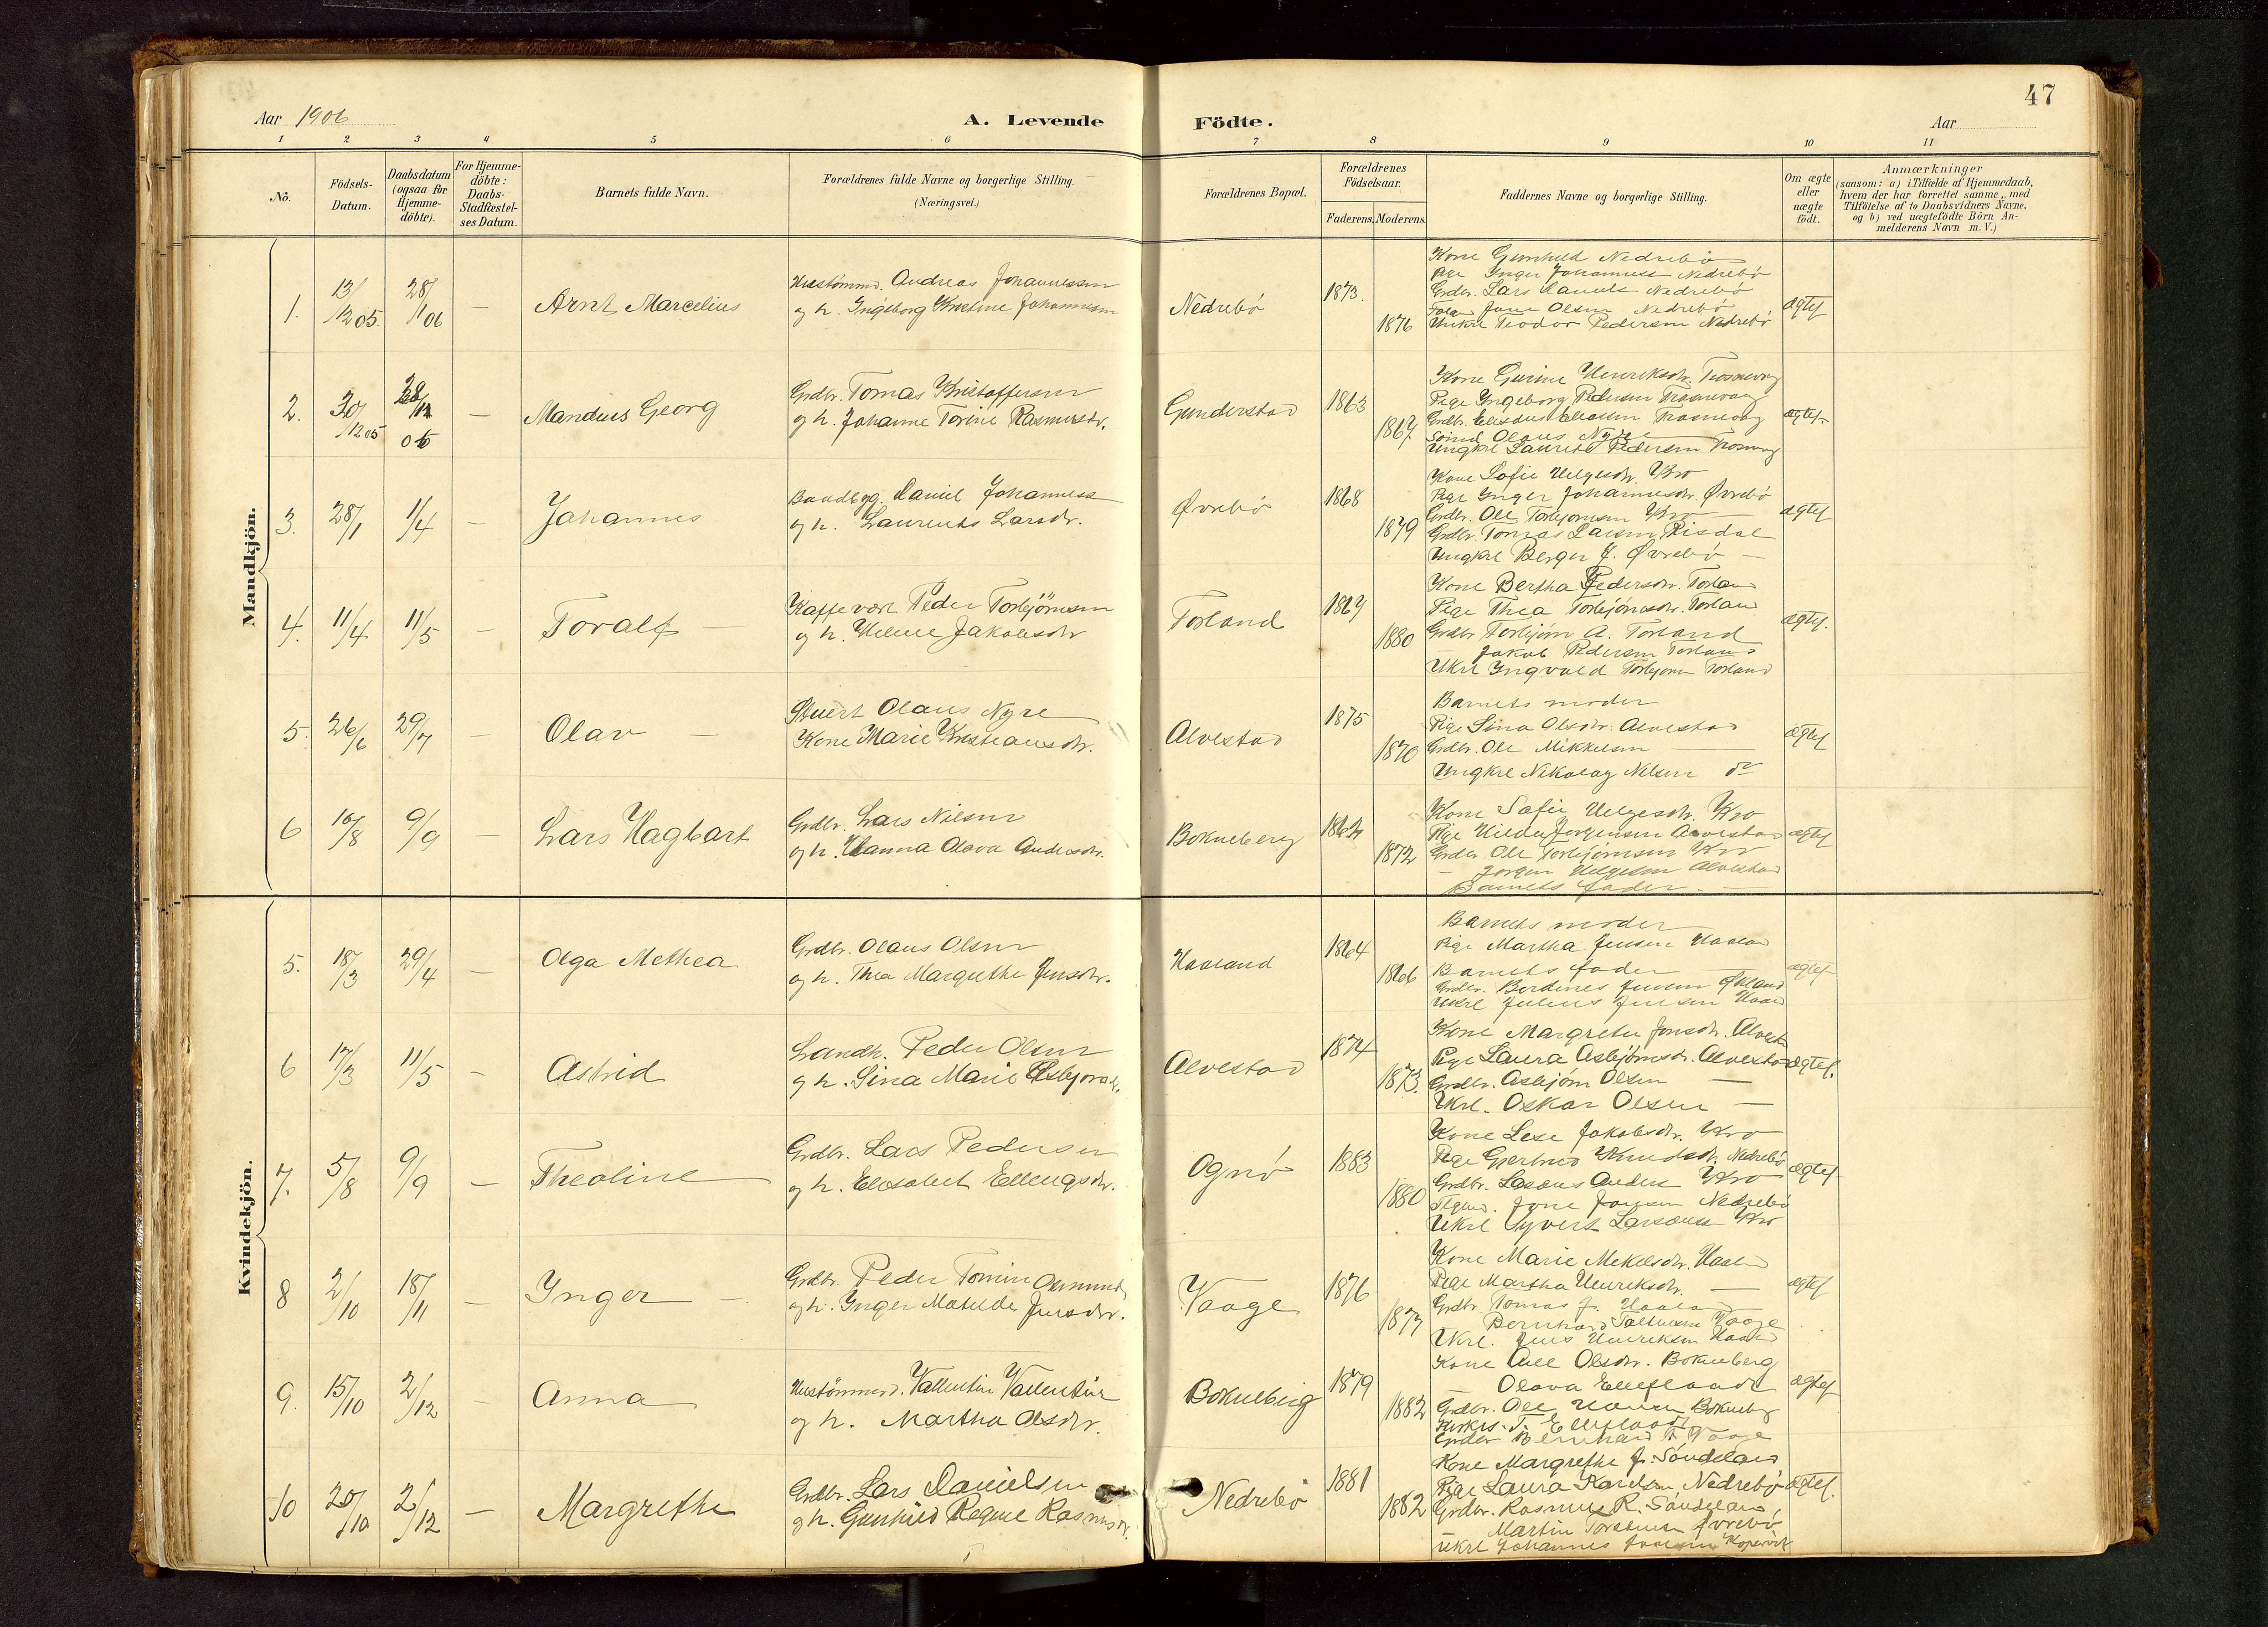 47
Aar 1906
A. Levende Födte.
Aar
1 2 3 4 5 6 7 8 9 10 11
No.
Födsels-Datum.
Daabsdatum (ogsaa for Hjemme-döbte).
For Hjemme-döbte: Daabs-Stadfæstel-ses Datum.
Barnets fulde Navn.
Forældrenes fulde Navne og borgerlige Stilling.
(Næringsvei.)
Forældrenes Bopæl.
Forældrenes Födselsaar.
Faderens. Moderens.
Faddernes Navne og borgerlige Stilling.
Om ægte eller uægte födt.
Anmærkninger
(saasom: a) i Tilfælde af Hjemmedaab, hvem der har forrettet samme, med Tilföielse af to Daabsvidners Navne, og b) ved uægtefödte Börn An-melderens Navn m. V.)
Mandkjön.
1. 13/12 05. 28/1 06 — Arnt Marcelius
Andreas Johannessen
og h. Ingeborg Kristine Johannesen
Nedrebö 1873. 1876
Kone Gunhild Nedrebö
Pige Inger Johannesen Nedrebö
Grdbr. Lars Daniels Nedrebö
Jone Olsen Nedrebö
Teodor Pedersen Nedrebö
ægtef
2. 30/12 05 — Mandius Georg
Grdbr. Tomas Kristoffersen
og h. Johanne Torine Rasmusdr.
Gunderstad 1863 1867.
Kone Gurine Henriksdr.
Pige Ingeborg Pedersen
Grdbr.
Olaus Nyre
Ungkrl Laurits Pedersen
ægtef.
3. 28/1 1/4 — Johannes
Daniel Johanness
og h. Laurents Larsdr.
Øvrebö 1868 1879
Kone Sofie Helgesdr. Kro
Pige Inger Johannesdr. Øvrebö
Grdbr. Ole Torbjornsen Kro
Grdbr. Tomas Larsen Risdal
Ungkrl Berger J. Øvrebö —
ægtef
4. 11/4 11/5 — Toralf —
Kaffevært Peder Torbjörnsen
og h. Helene Jakobsdr
Torland 1869 1880
Kone Bertha Pedersdr. Torland
Pige Thea Torbjörnsdr. Torland
Grdbr Torbjörn A. Torland
— Jakob Pedersen Torland
Ukrl Ingvald Torbjorn Torland
ægtef.
5. 26/6 29/7 — Olav —
Olaus Nyre
Kone Marie Kristiansdr.
Alvestad 1875 1870
Barnets moder
Pige Sina Olsdr. Alvestad
Grdbr. Ole Mikkelsen —
Ungkrl Nikolay Nilsen do
ægtef
6 10/8 9/9 — Lars Hagbart
Grdbr. Lars Nilsen
og h. Hanna Olava Andersdr.
Bokneberg 1862 1872
Kone Sofie Helgesdr. Kro
Pige Hilda Jorgensen Alvestad
Grdbr. Ole Torbjörnsen Kro
— Jorgen Helgesen Alvestad
Barnets fader. —
ægtef
Kvindekjön.
5. 18/3 29/4 — Olga Methea
Grdbr. Olaus Olsen
og h. Thea Margrethe Jensdr.
Haaland 1864 1866
Barnets moder
Pige Martha Jensen Haaland
Barnets fader —
Grdbr. Berdines Jensen
Ukrl Julius Jensen
ægtef
6 17/3 11/5 — Astrid
Landh. Peder Olsen
og h. Sina Marie Asbjornsdr.
Alvestad 1874 1873.
Kone Margrete Jonsdr. Alvest
Pige Laura Asbjörnsdr. Alvestad
Grdbr. Asbjörn Olsen —
Ukrl. Oskar Olsen —
ægtef.
7. 5/8 9/9 — Theoline
Grdbr. Lars Pedersen
og h. Elisabet Ellengsdr.
Ognö 1883 1880
Kone Lese Jakobsdr. Kro
Pige Gjertrud Knudsdr. Nedrebö
Grdbr. Anders Kro
Jone Nedrebö
Ukrl Syvert Larsen Kro
ægtef
8 2/10 18/11 — Inger —
Grdbr. Peder Osmunds
og h. Inger Matilde Jensdr.
Vaage 1876 1877
Kone Marie Mekelsdr. Haaland
Pige Martha Henriksdr. —
Grdbr. Tomas J. Haaland
Bernhard Vaage
Ukrl. Jens Henriksen Haaland
ægtef
9. 15/10 2/12 — Anna
Vallentin Vallentin
og h. Martha Olsdr.
Bokneberg 1879 1882
Kone Ane Olsdr. Bokneberg
— Olava
Grdbr. Ole Hansen Bokneberg
Grdbr Bernhard T. Vaage
ægtef
10 20/10 2/12 — Margrethe
Grdbr. Lars Danielsen
og h. Gunhild Regine Rasmusdr.
Nedrebö 1881 1882
Kone Margrethe J. Söndeland
Pige Laura Karlsen Nedrebö
Grdbr. Rasmus R. Söndeland
Martin Torstensen Övrebö
Ukrl Johannes Kopervik
ægtef.